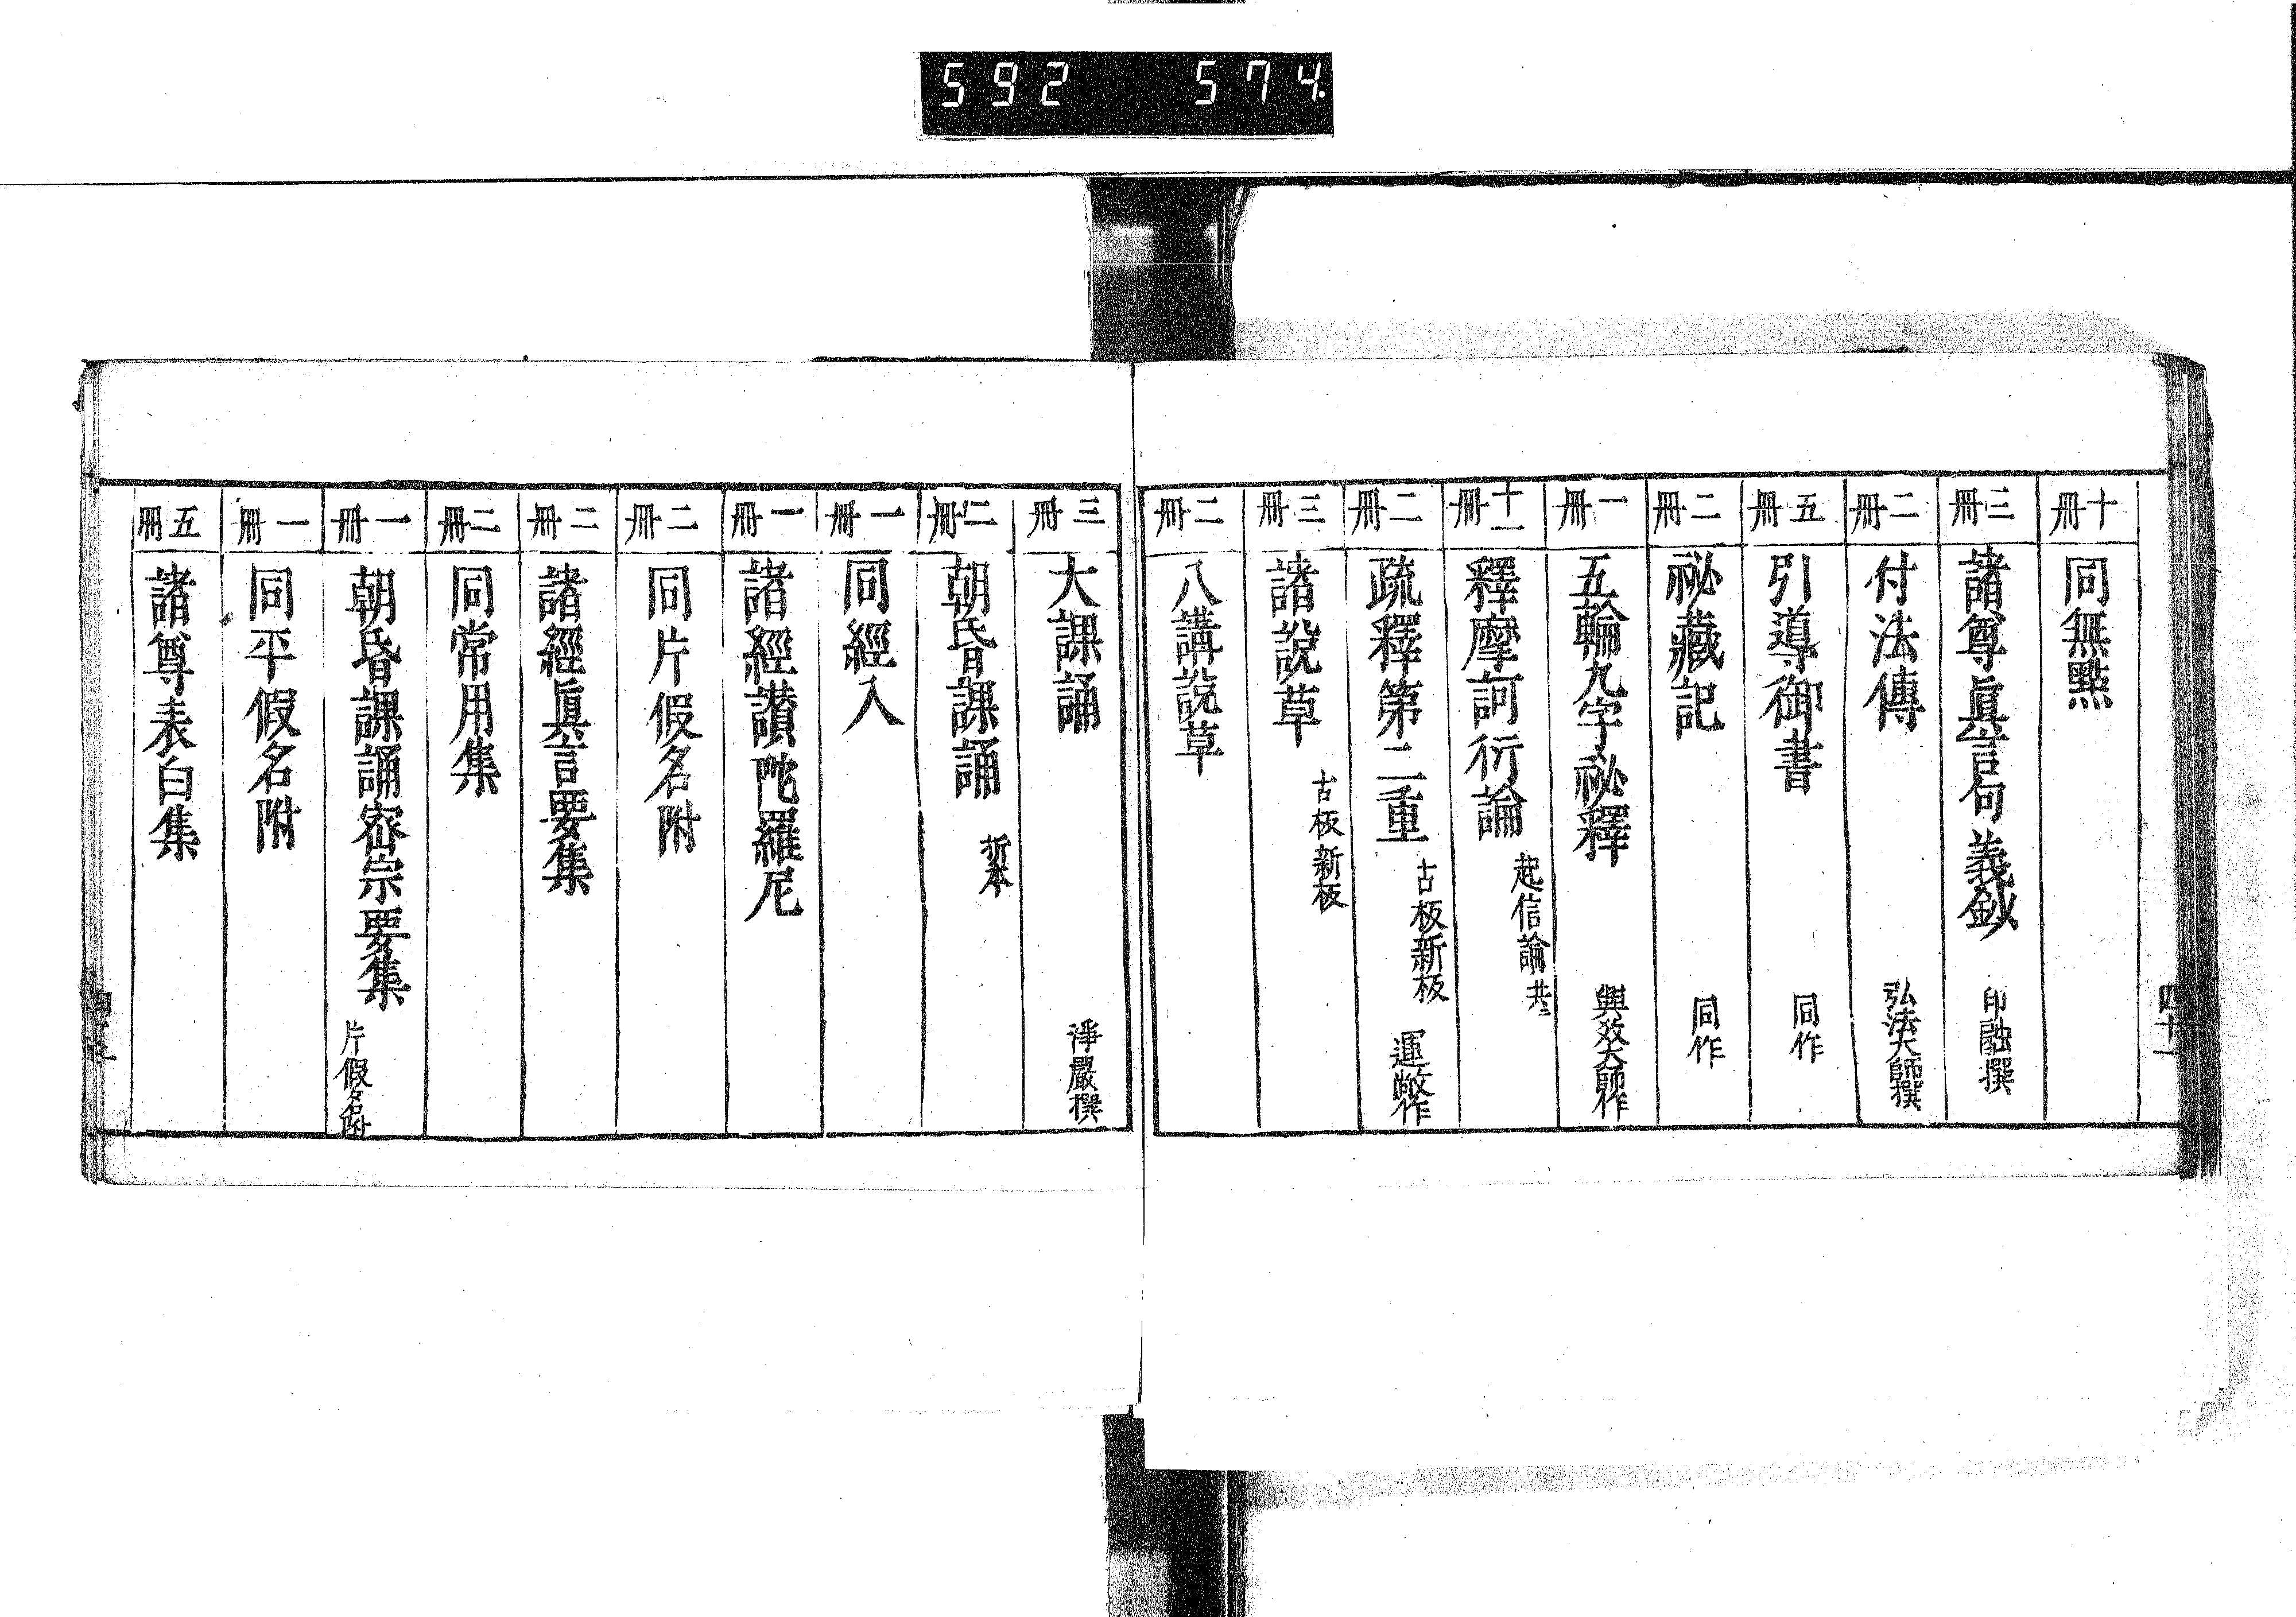 592 574.
四十一
十冊 同無點
三冊 諸尊眞言句義鈔 印融撰
二冊 付法傳 弘法大師撰
五冊 引導御書 同作
二冊 祕藏記 同作
一冊 五輪九字祕釋 興教大師作
十一冊 釋摩訶衍論 起信論共ニ
二冊 疏釋第二重 古板新板 運敞作
三冊 諸說草 古板新板
二冊 八講說草
三冊 大課誦 淨嚴撰
二冊 朝昏課誦 折本
一冊 同經入
一冊 諸經讃陀羅尼
二冊 同片假名附
二冊 諸經眞言要集
二冊 同常用集
一冊 朝昏課誦密宗要集 片假名附
一冊 同平假名附
五冊 諸尊表白集